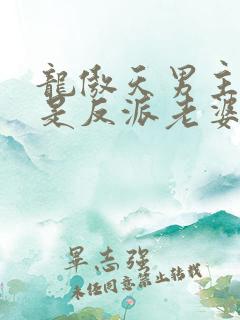 龍傲天男主
是反派老婆
志强
未经同意禁止转载